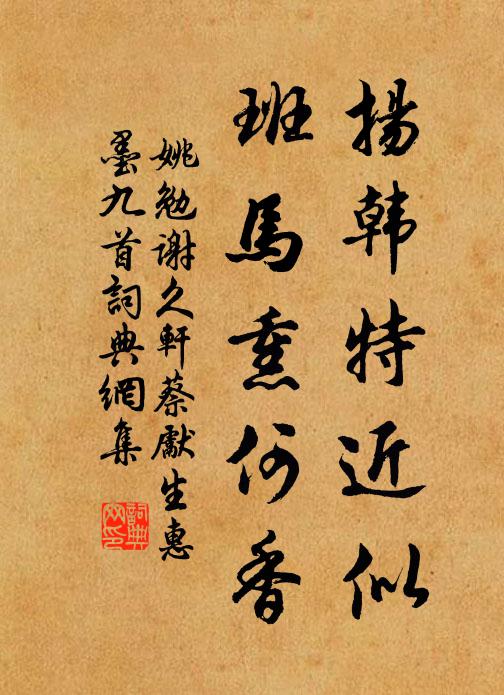 揚韩特近似
班馬熏何香
姚勉谢久軒蔡獻生惠
墨九首詞典網集
詞典网印